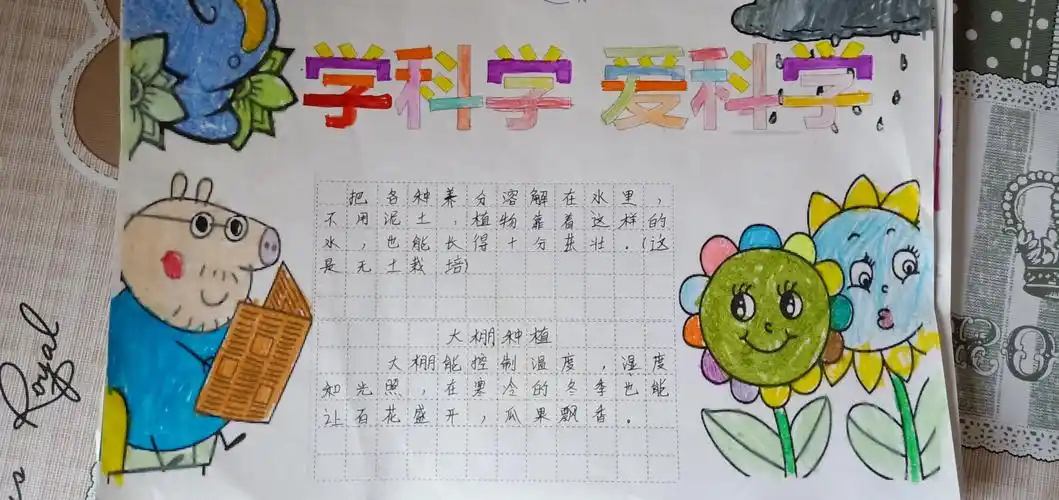 学科学 爱科学
把各种养分溶解在水里，
不用泥土，植物靠着这样的
水，也能长得十分茁壮。(这
是无土栽培)
大棚种植
大棚能控制温度，湿度
和光照，在寒冷的冬季也能
让百花盛开，瓜果飘香。
Royal